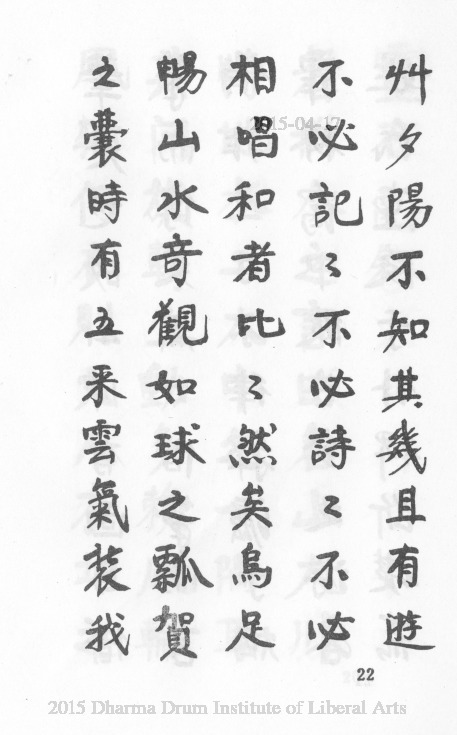 艸夕陽不知其幾且有遊
不必記〻不必詩〻不必
相唱和者比〻然矣烏足
暢山水奇觀如球之瓢賀
之囊時有五采雲氣裝我
22
2015-04-17
2015 Dharma Drum Institute of Liberal Arts